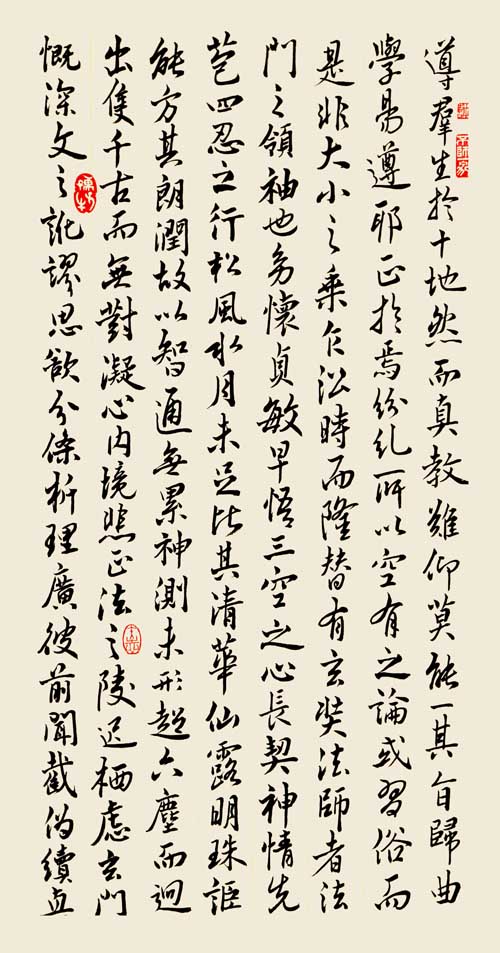 導羣生於十地然而真教難仰莫能一其旨歸曲
學易遵耶正於焉紛糺所以空有之論或習俗而
是非大小之乘乍沿時而隆替有玄奘法師者法
門之領袖也幼懷貞敏早悟三空之心長契神情先
苞四忍之行松風水月未足比其清華仙露明珠詎
能方其朗潤故以智通無累神測未形超六塵而迥
出隻千古而無對凝心內境悲正法之陵遲栖慮玄門
慨深文之訛謬思欲分條析理廣彼前聞截偽續真